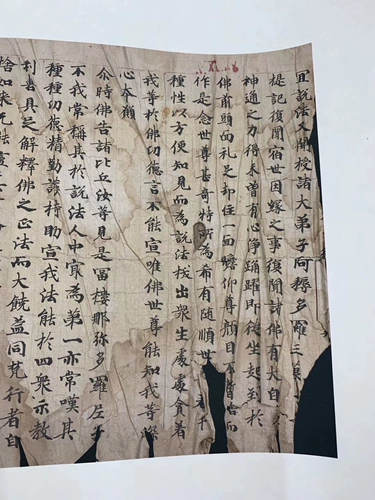 宜說法又聞授諸大弟子阿耨多羅三
提記復聞宿世因緣之事復聞諸佛有大自
神通之力得未曾有心淨踊躍即從坐起到於
佛前頭面礼足却住一面瞻仰尊顏目不暫舍而
作是念世尊甚奇特所為希有隨順世干
種性以方便知見而為說法拔出眾生處處貪著
我等於佛功德言不能宣唯佛世尊能知我等深
心本願
尒時佛告諸比丘汝等見是富樓那弥多羅尼子
不我常稱其於說法人中冣為第一亦常嘆其
種種功德精勤護持助宣我法能於四眾示教
利喜具足解釋佛之正法而大饒益同梵行者自
捨如來无能